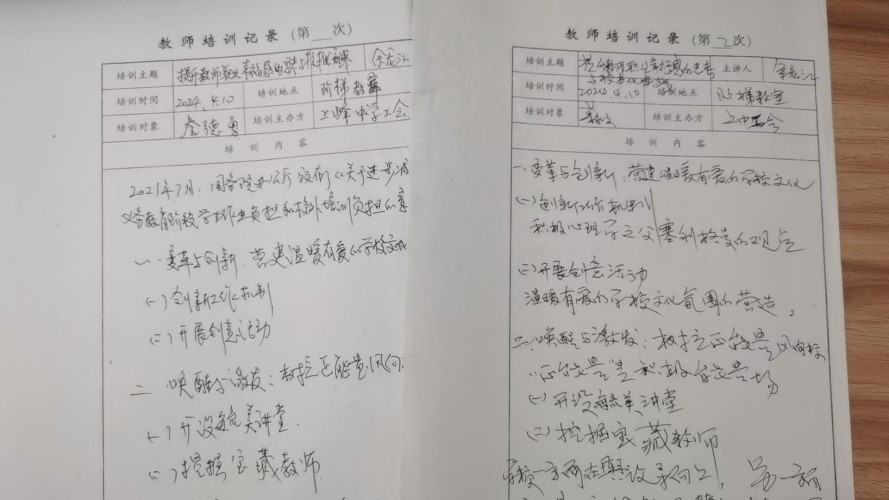 教师培训记录（第　次）
培训主题 提升教师职业幸福感的 主讲人 余龙江
培训时间 2024.4.10 培训地点 阶梯教室
培训对象 詹德勇 培训主办方 中学工会
培训内容
2021年7月，国务院办公厅 《关于进一步减
义务教育阶段学生作业负担和校外培训负担的意
一、变革与创新，营建温暖有爱的学校文
(一)创新工作机制
(二)开展创意活动
二、唤醒与激发：树立正能量风向
(一)开设毓美讲堂
(二)挖掘宝藏教师
教师培训记录（第2次）
培训主题 主讲人 余龙江
培训时间 2024.4.10 培训地点 阶梯教室
培训对象 培训主办方 工会
培训内容
一、变革与创新，营建温暖有爱的学校文化
(一)创新工作机制
积极心理学之父塞利格曼的观点
(二)开展创意活动
温暖有爱的学校文化氛围的营造。
二、唤醒与激发：树立正能量风向标
正能量是积极能量场
(一)开设毓美讲堂
(二)挖掘宝藏教师
学校一方面在 另一方面